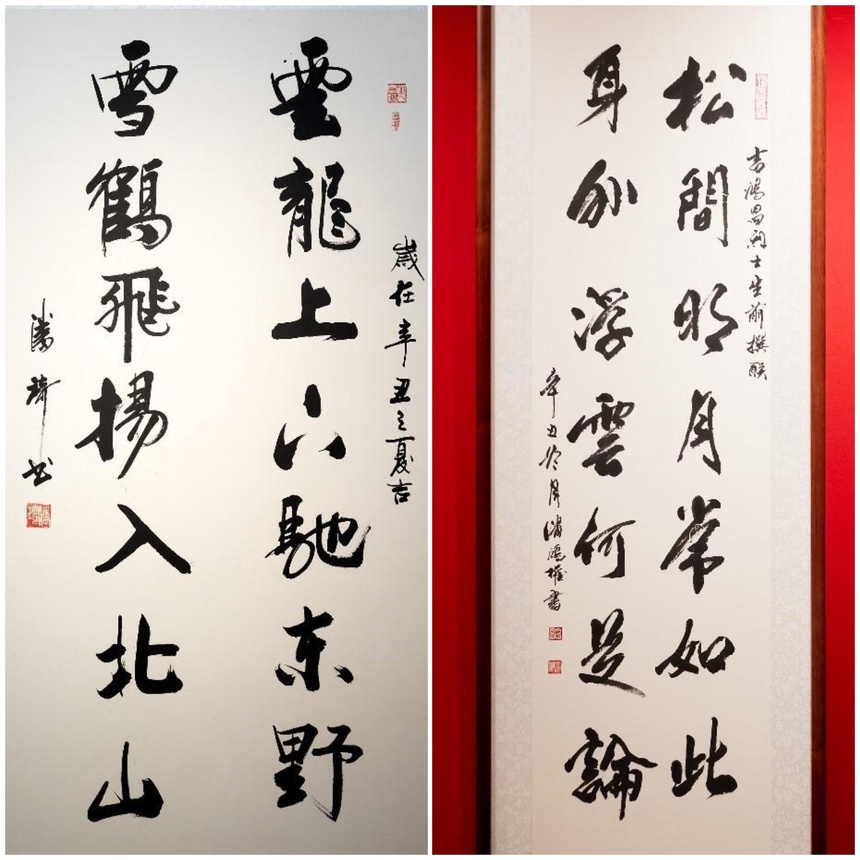 歲在辛丑之夏吉
雲龍上下馳东野
雪鶴飛揚入北山
潘琦书
吉鴻昌烈士生前撰联
松間明月常如此
身外浮雲何足論
辛丑月書